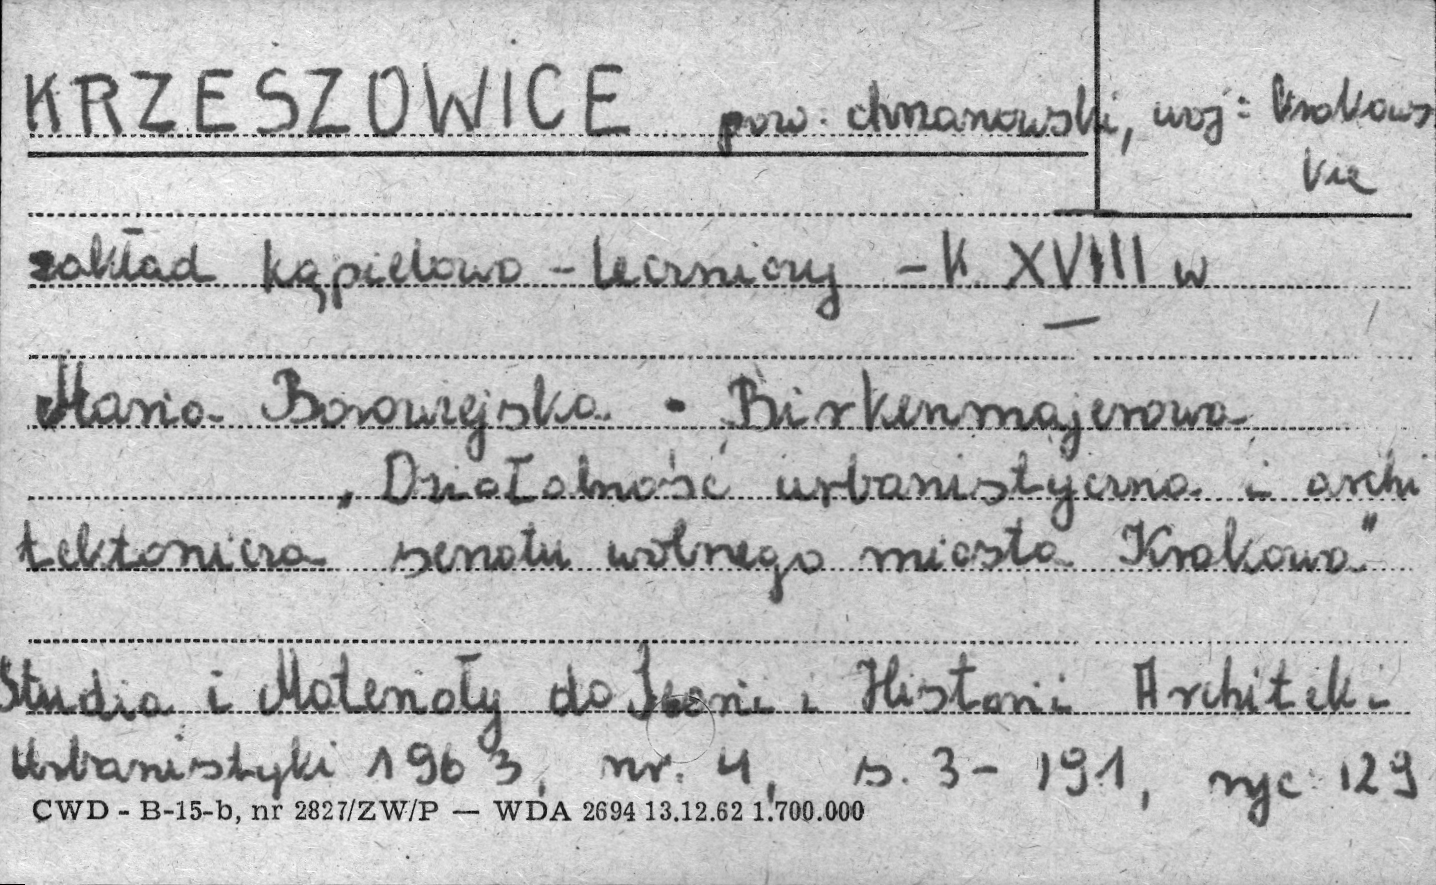 KRZESZOWICE pow. chrzanowski, woj: krakows
kie
zakład kąpielowo - leczniczy - K. XVIII w
Maria Borowiejska - Birkenmajerowa
"Działalność urbanistyczna i archi
tektonicza senatu wolnego miasta Krakowa"
Studia i Materiały do Teorii i Historii Architek i
Urbanistyki 1963, nr. 4, s. 3 - 191, ryc: 129
CWD - B-15-b, nr 2827/ZW/P — WDA 2694 13.12.62 1.700.000